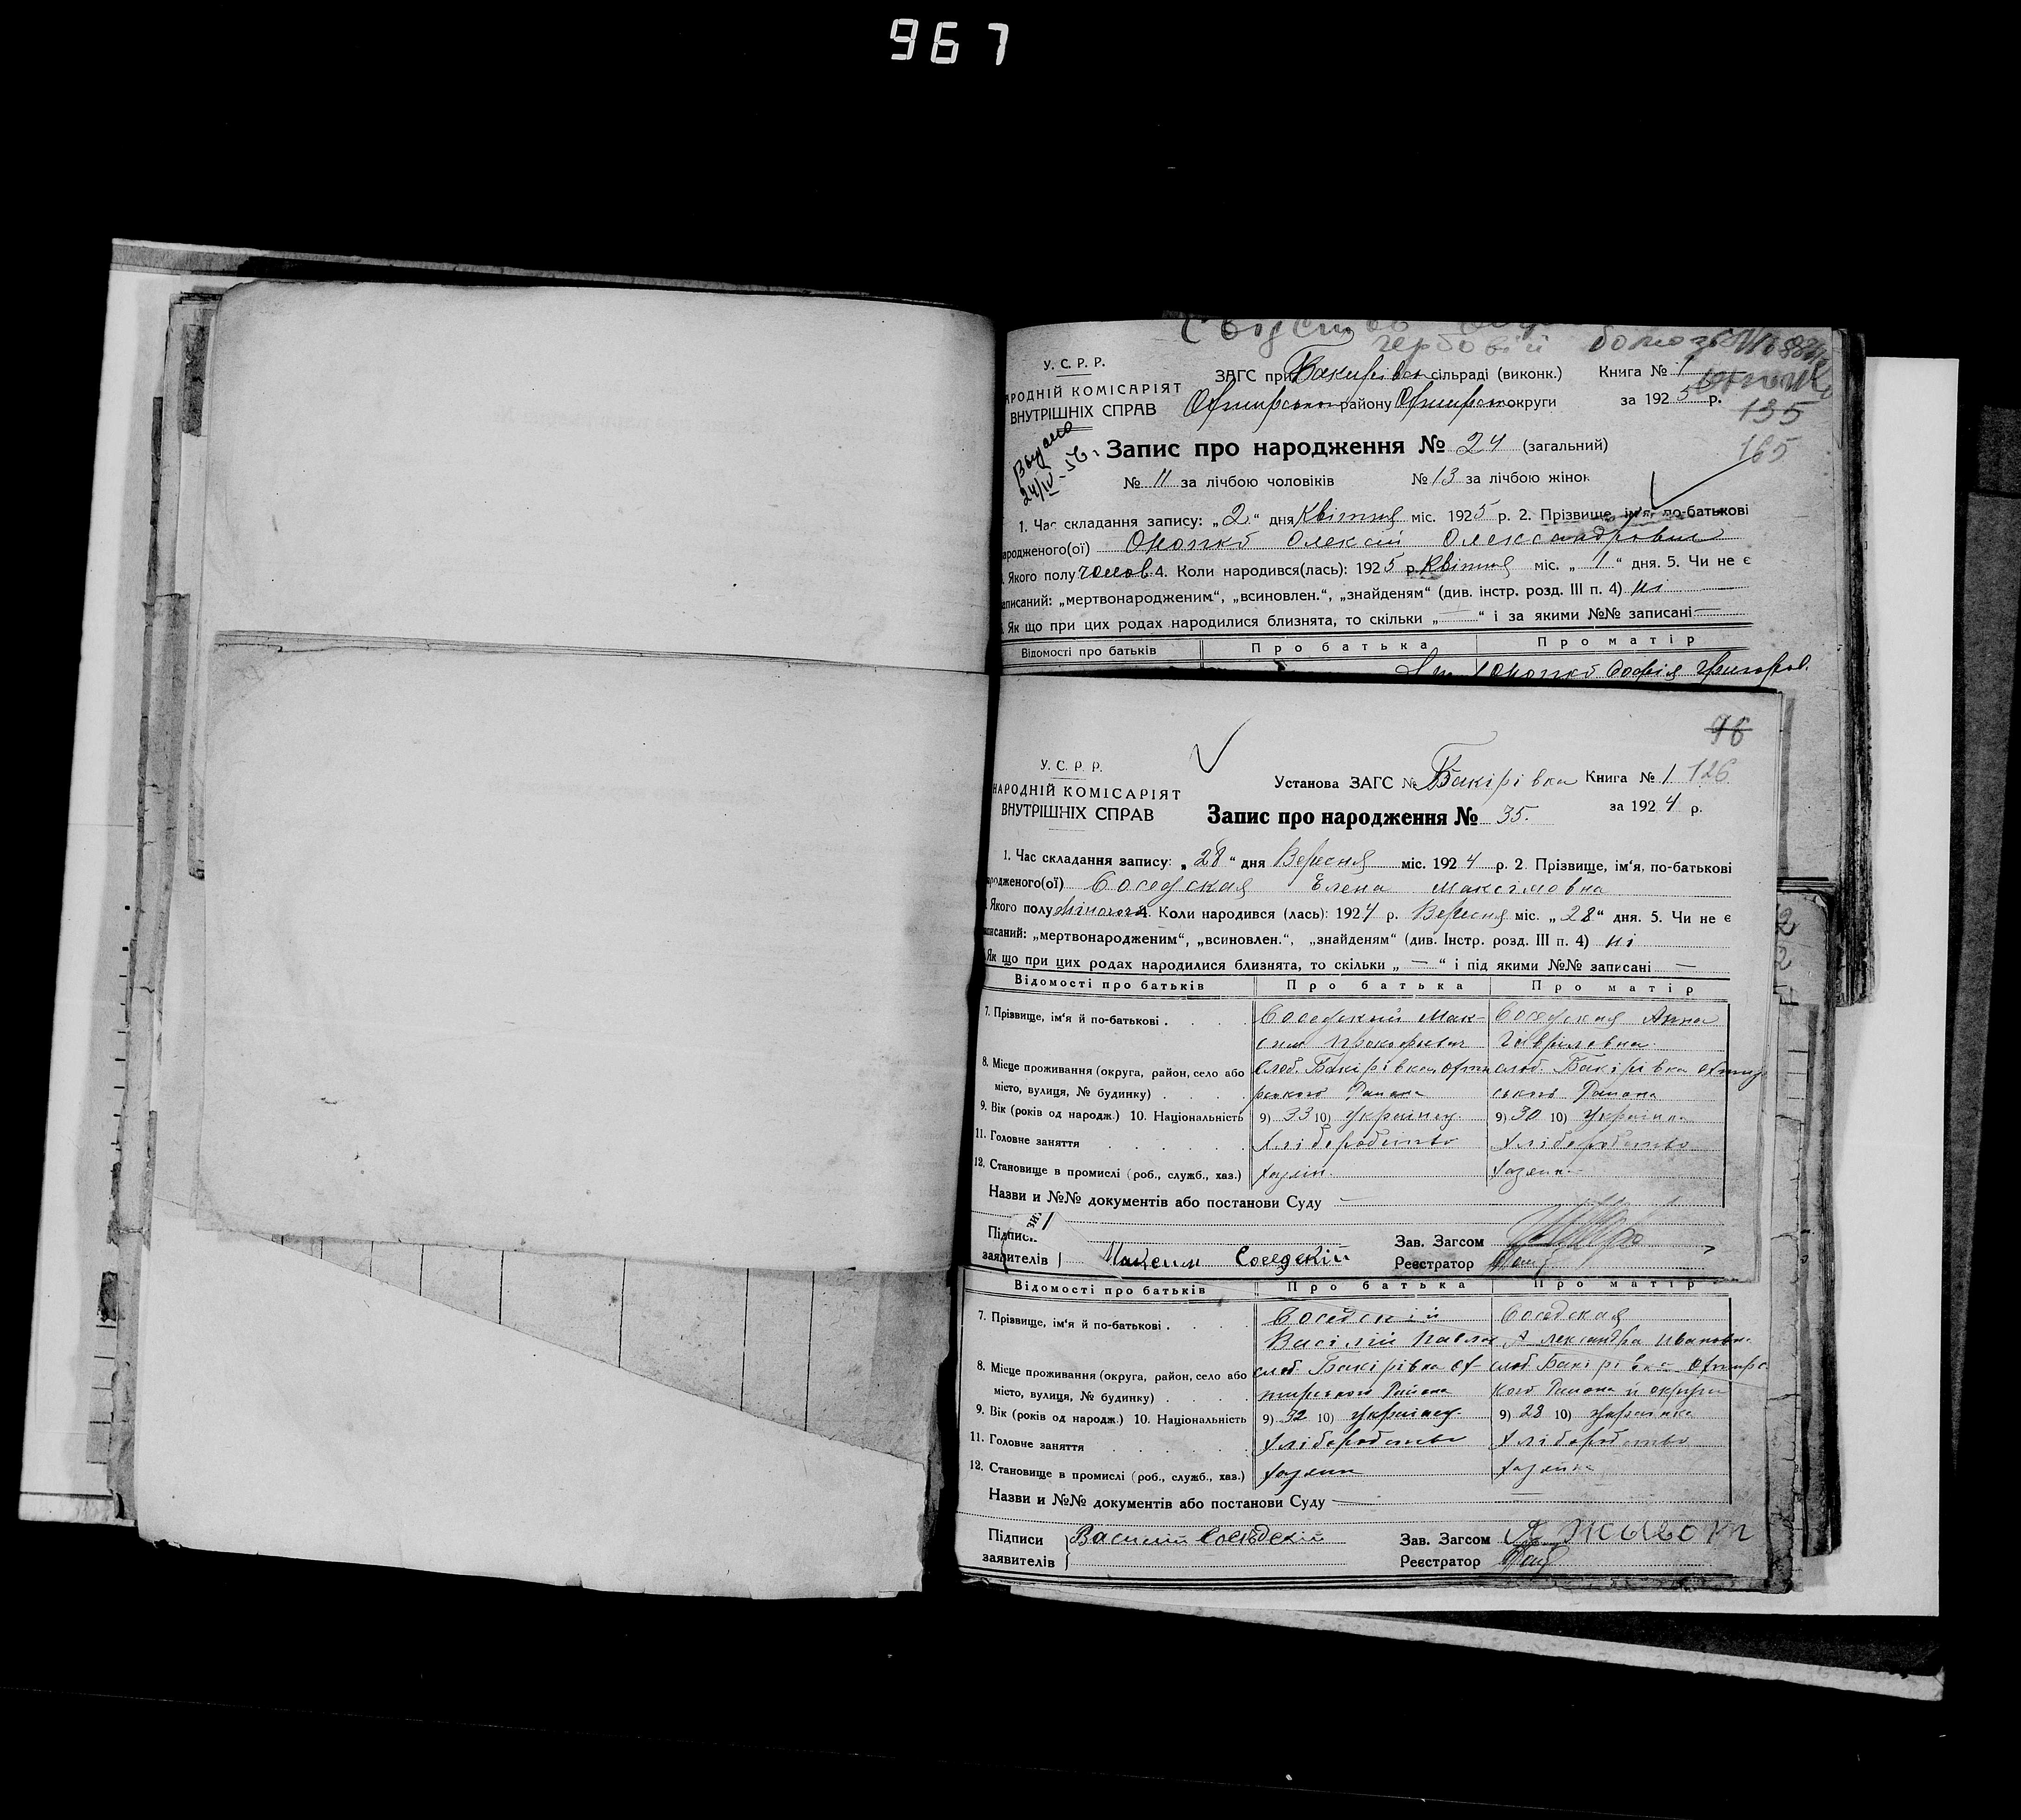 967
У. С. Р. Р.
НАРОДНІЙ КОМІСАРІЯТ
ВНУТРІШНІХ СПРАВ
ЗАГС при сільраді (виконк.) Книга № 1
району округи за 1925 р.
135
165
Видано
24/IV-56.
Запис про народження № 24 (загальний)
№ 11 за лічбою чоловіків № 13 за лічбою жінок
1. Час складання запису: „2“ дня Квітня міс. 1925 р. 2. Прізвище, ім'я, по-батькові
народженого(ої) Олексій
Якого полу 4. Коли народився(лась): 1925 р. Квітня міс. „1“ дня. 5. Чи не є
записаний: „мертвонародженим“, „всиновлен.“, „знайденям“ (див. інстр. розд. III п. 4) ні
Як що при цих родах народилися близнята, то скільки „—“ і за якими №№ записані —
Відомості про батьків Про батька Про матір
Софія Григоров.
96
У. С. Р. Р.
НАРОДНІЙ КОМІСАРІЯТ
ВНУТРІШНІХ СПРАВ
Установа ЗАГС № Бакірівка Книга № 1 126
за 1924 р.
Запис про народження № 35.
1. Час складання запису: „28“ дня Вересня міс. 1924 р. 2. Прізвище, ім'я, по-батькові
народженого(ої) Соседская Елена Максімовна
Якого полу 4. Коли народився (лась): 1924 р. Вересня міс. „28“ дня. 5. Чи не є
записаний: „мертвонародженим“, „всиновлен.“, „знайденям“ (див. Інстр. розд. III п. 4) ні
Як що при цих родах народилися близнята, то скільки „—“ і під якими №№ записані —
Відомості про батьків Про батька Про матір
7. Прізвище, ім'я й по-батькові . Соседский Мак- Соседская Анна
сим Прокофьевич Гавриловна
8. Місце проживання (округа, район, село або слоб. Бакірівка Охти слоб. Бакірівка Охтир
місто, вулиця, № будинку) . рського Району ського Району
9. Вік (років од народж.) 10. Національність 9) 33 10) Українец. 9) 30 10) Українка
11. Головне заняття Хліборобство Хліборобство
12. Становище в промислі (роб., служб., хаз.) Хазяїн. Хазяїн.
Назви и №№ документів або постанови Суду —
Підписи Зав. Загсом
заявителів Максим Соседский Реєстратор
Відомості про батьків Про батька Про матір
7. Прізвище, ім'я й по-батькові . Соседскій Соседская
Васілій Павлов Александра Ивановн.
8. Місце проживання (округа, район, село або слоб Бакірівка Ох- слоб Бакірівка Охтирс
місто, вулиця, № будинку) . тирського Району кого Района и округи
9. Вік (років од народж.) 10. Національність 9) 32 10) Українец. 9) 28 10) Українка
11. Головне заняття Хліборобство Хліборобство
12. Становище в промислі (роб., служб., хаз.) Хазяин Хазяйка
Назви и №№ документів або постанови Суду —
Підписи Василий Соседский Зав. Загсом
заявителів Реєстратор